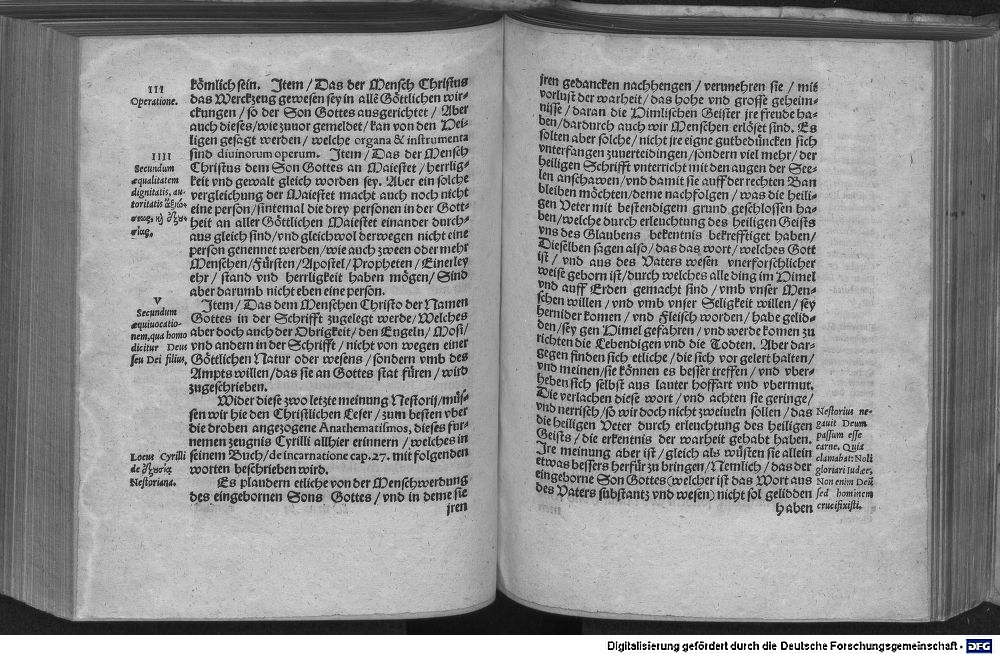 III
Operatione.
IIII
Secundum
æqualitatem
dignitatis, au-
toritatis
V
Secundum
æquiuocatio-
nem, qua homo
dicitur Deus
seu Dei filius.
Locus Cyrilli
de
Nestoriana.
kömlich sein. Item / Das der Mensch Christus
das Werckzeng gewesen sey in allē Göttlichen wir-
ckungen / so der Son Gottes ausgerichtet / Aber
auch dieses / wie zuuor gemeldet / kan von den Hei-
ligen gesagt werden / welche organa & instrumenta
sind diuinorum operum. Item / Das der Mensch
Christus dem Son Gottes an Maiestet / herrlig-
keit vnd gewalt gleich worden sey. Aber ein solche
vergleichung der Maiestet macht auch noch nicht
eine person / sintemal die drey personen in der Gott-
heit an aller Göttlichen Maiestet einander durch-
aus gleich sind / vnd gleichwol derwegen nicht eine
person genennet werden / wie auch zween oder mehr
Menschen / Fürsten / Apostel / Propheten / Einerley
ehr / stand vnd herrligkeit haben mögen / Sind
aber darumb nicht eben eine person.
Item / Das dem Menschen Christo der Namen
Gottes in der Schrifft zugelegt werde / Welches
aber doch auch der Obrigkeit / den Engeln / Mosi /
vnd andern in der Schrifft / nicht von wegen einer
Göttlichen Natur oder wesens / sondern vmb des
Ampts willen / das sie an Gottes stat füren / wird
zugeschrieben.
Wider diese zwo letzte meinung Nestorij / müs-
sen wir hie den Christlichen Leser / zum besten vber
die droben angezogene Anathematismos, dieses für-
nemen zeugnis Cyrilli allhier erinnern / welches in
seinem Buch / de incarnatione cap. 27. mit folgenden
worten beschrieben wird.
Es plaudern etliche von der Menschwerdung
des eingebornen Sons Gottes / vnd in deme sie
jren
jren gedancken nachhengen / vernehren sie / mit
vorlust der warheit / das hohe vnd grosse geheim-
nisse / daran die Himlischen Geister jre freude ha-
ben / dardurch auch wir Menschen erlöset sind. Es
solten aber solche / nicht jre eigne gutbedüncken sich
vnterfangen zuuerteidingen / sondern viel mehr / der
heiligen Schrifft vnterricht mit den augen der See-
len anschawen / vnd damit sie auff der rechten Ban
bleiben möchten / deme nachfolgen / was die heili-
gen Veter mit bestendigem grund geschlossen ha-
ben / welche durch erleuchtung des heiligen Geists
vns des Glaubens bekentnis bekrefftiget haben /
Dieselben sagen also / das das wort / welches Gott
ist / vnd aus des Vaters wesen vnerforschlicher
weise geborn ist / durch welches alle ding im Himel
vnd auff Erden gemacht sind / vmb vnser Men-
schen willen / vnd vmb vnser Seligkeit willen / sey
hernider komen / vnd Fleisch worden / habe gelid-
den / sey gen Himel gefahren / vnd werde komen zu
richten die Lebendigen vnd die Todten. Aber dar-
gegen finden sich etliche / die sich vor gelert halten /
vnd meinen / sie können es besser treffen / vnd vber-
heben sich selbst aus lauter hoffart vnd vbermut.
Die verlachen diese wort / vnd achten sie geringe /
vnd nerrisch / so wir doch nicht zweiueln sollen / das
die heiligen Veter durch erleuchtung des heiligen
Geists / die erkentnis der warheit gehabt haben.
Jre meinung aber ist / gleich als wüsten sie allein
etwas bessers herfür zu bringen / Nemlich / das der
eingeborne Son Gottes (welcher ist das Wort aus
des Vaters substantz vnd wesen) nicht sol gelidden
haben
Nestorius ne-
gauit Deum
passum esse
carne. Quia
clamabat: Noli
gloriari Iudæe,
Non enim Deū
sed hominem
crucifixisti.
Digitalisierung gefördert durch die Deutsche Forschungsgemeinschaft - DFG